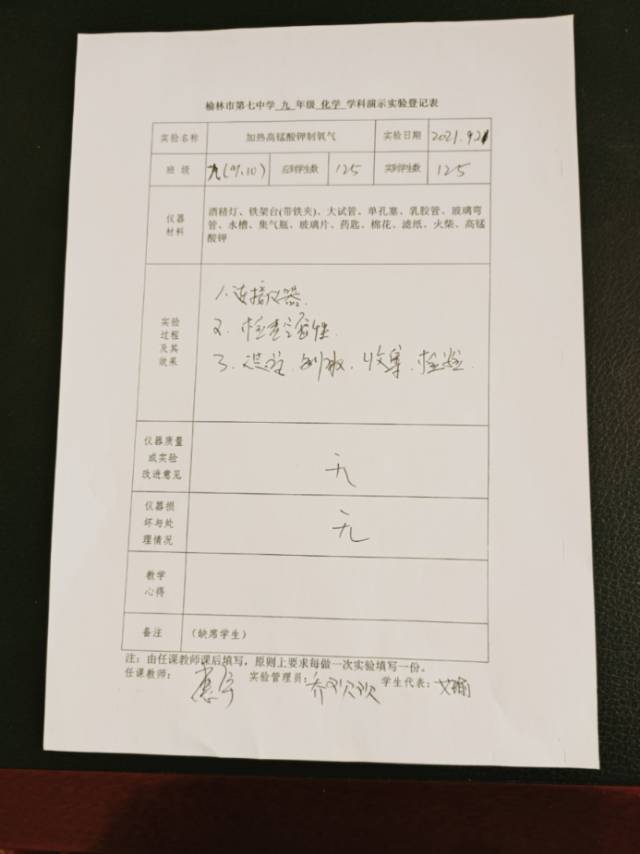 榆林市第七中学 九 年级 化学 学科演示实验登记表
实验名称 加热高锰酸钾制氧气 实验日期 2021.9.21
班 级 九(9、10) 应到学生数 125 实到学生数 125
仪器
材料
酒精灯、铁架台(带铁夹)、大试管、单孔塞、乳胶管、玻璃弯
管、水槽、集气瓶、玻璃片、药匙、棉花、滤纸、火柴、高锰
酸钾
实验
过程
及其
效果
1.连接仪器.
2.检查气密性.
3. 制取、收集、检验.
仪器质量
或实验
改进意见
无
仪器损
坏与处
理情况
无
教学
心得
备注 (缺席学生)
注：由任课教师课后填写，原则上要求每做一次实验填写一份。
任课教师： 实验管理员： 学生代表：